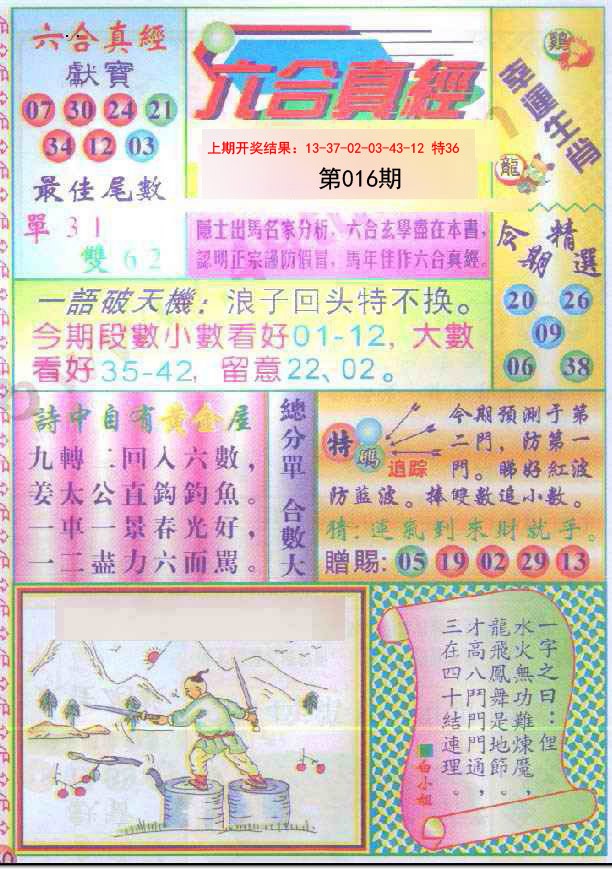 六合真經
獻寶
07 30 24 21
34 12 03
最佳尾數
單 31
雙 62
六合真經
上期开奖结果：13-37-02-03-43-12 特36
第016期
隱士出馬名家分析，六合玄學盡在本書，
認明正宗謹防假冒，馬年佳作六合真經。
雞
幸運生肖
龍
今期精選
20 26
09
06 38
一語破天機：浪子回头特不换。
今期段數小數看好01-12，大數
看好35-42，留意22、02。
詩中自有黃金屋
九轉二回入六數，
姜太公直鈎釣魚。
一車一景春光好，
一二盡力六而罵。
總分單 合數大
特碼
追踪
今期預測于第
二門，防第一
門。睇好紅波
防藍波。捧雙數追小數。
猜：運氣到來財就手。
贈賜：05 19 02 29 13
一字之曰：俚
水火無功難煉魔，
龍飛鳳舞是地節。
才高八門門通，
三在四十結連理。
白小姐